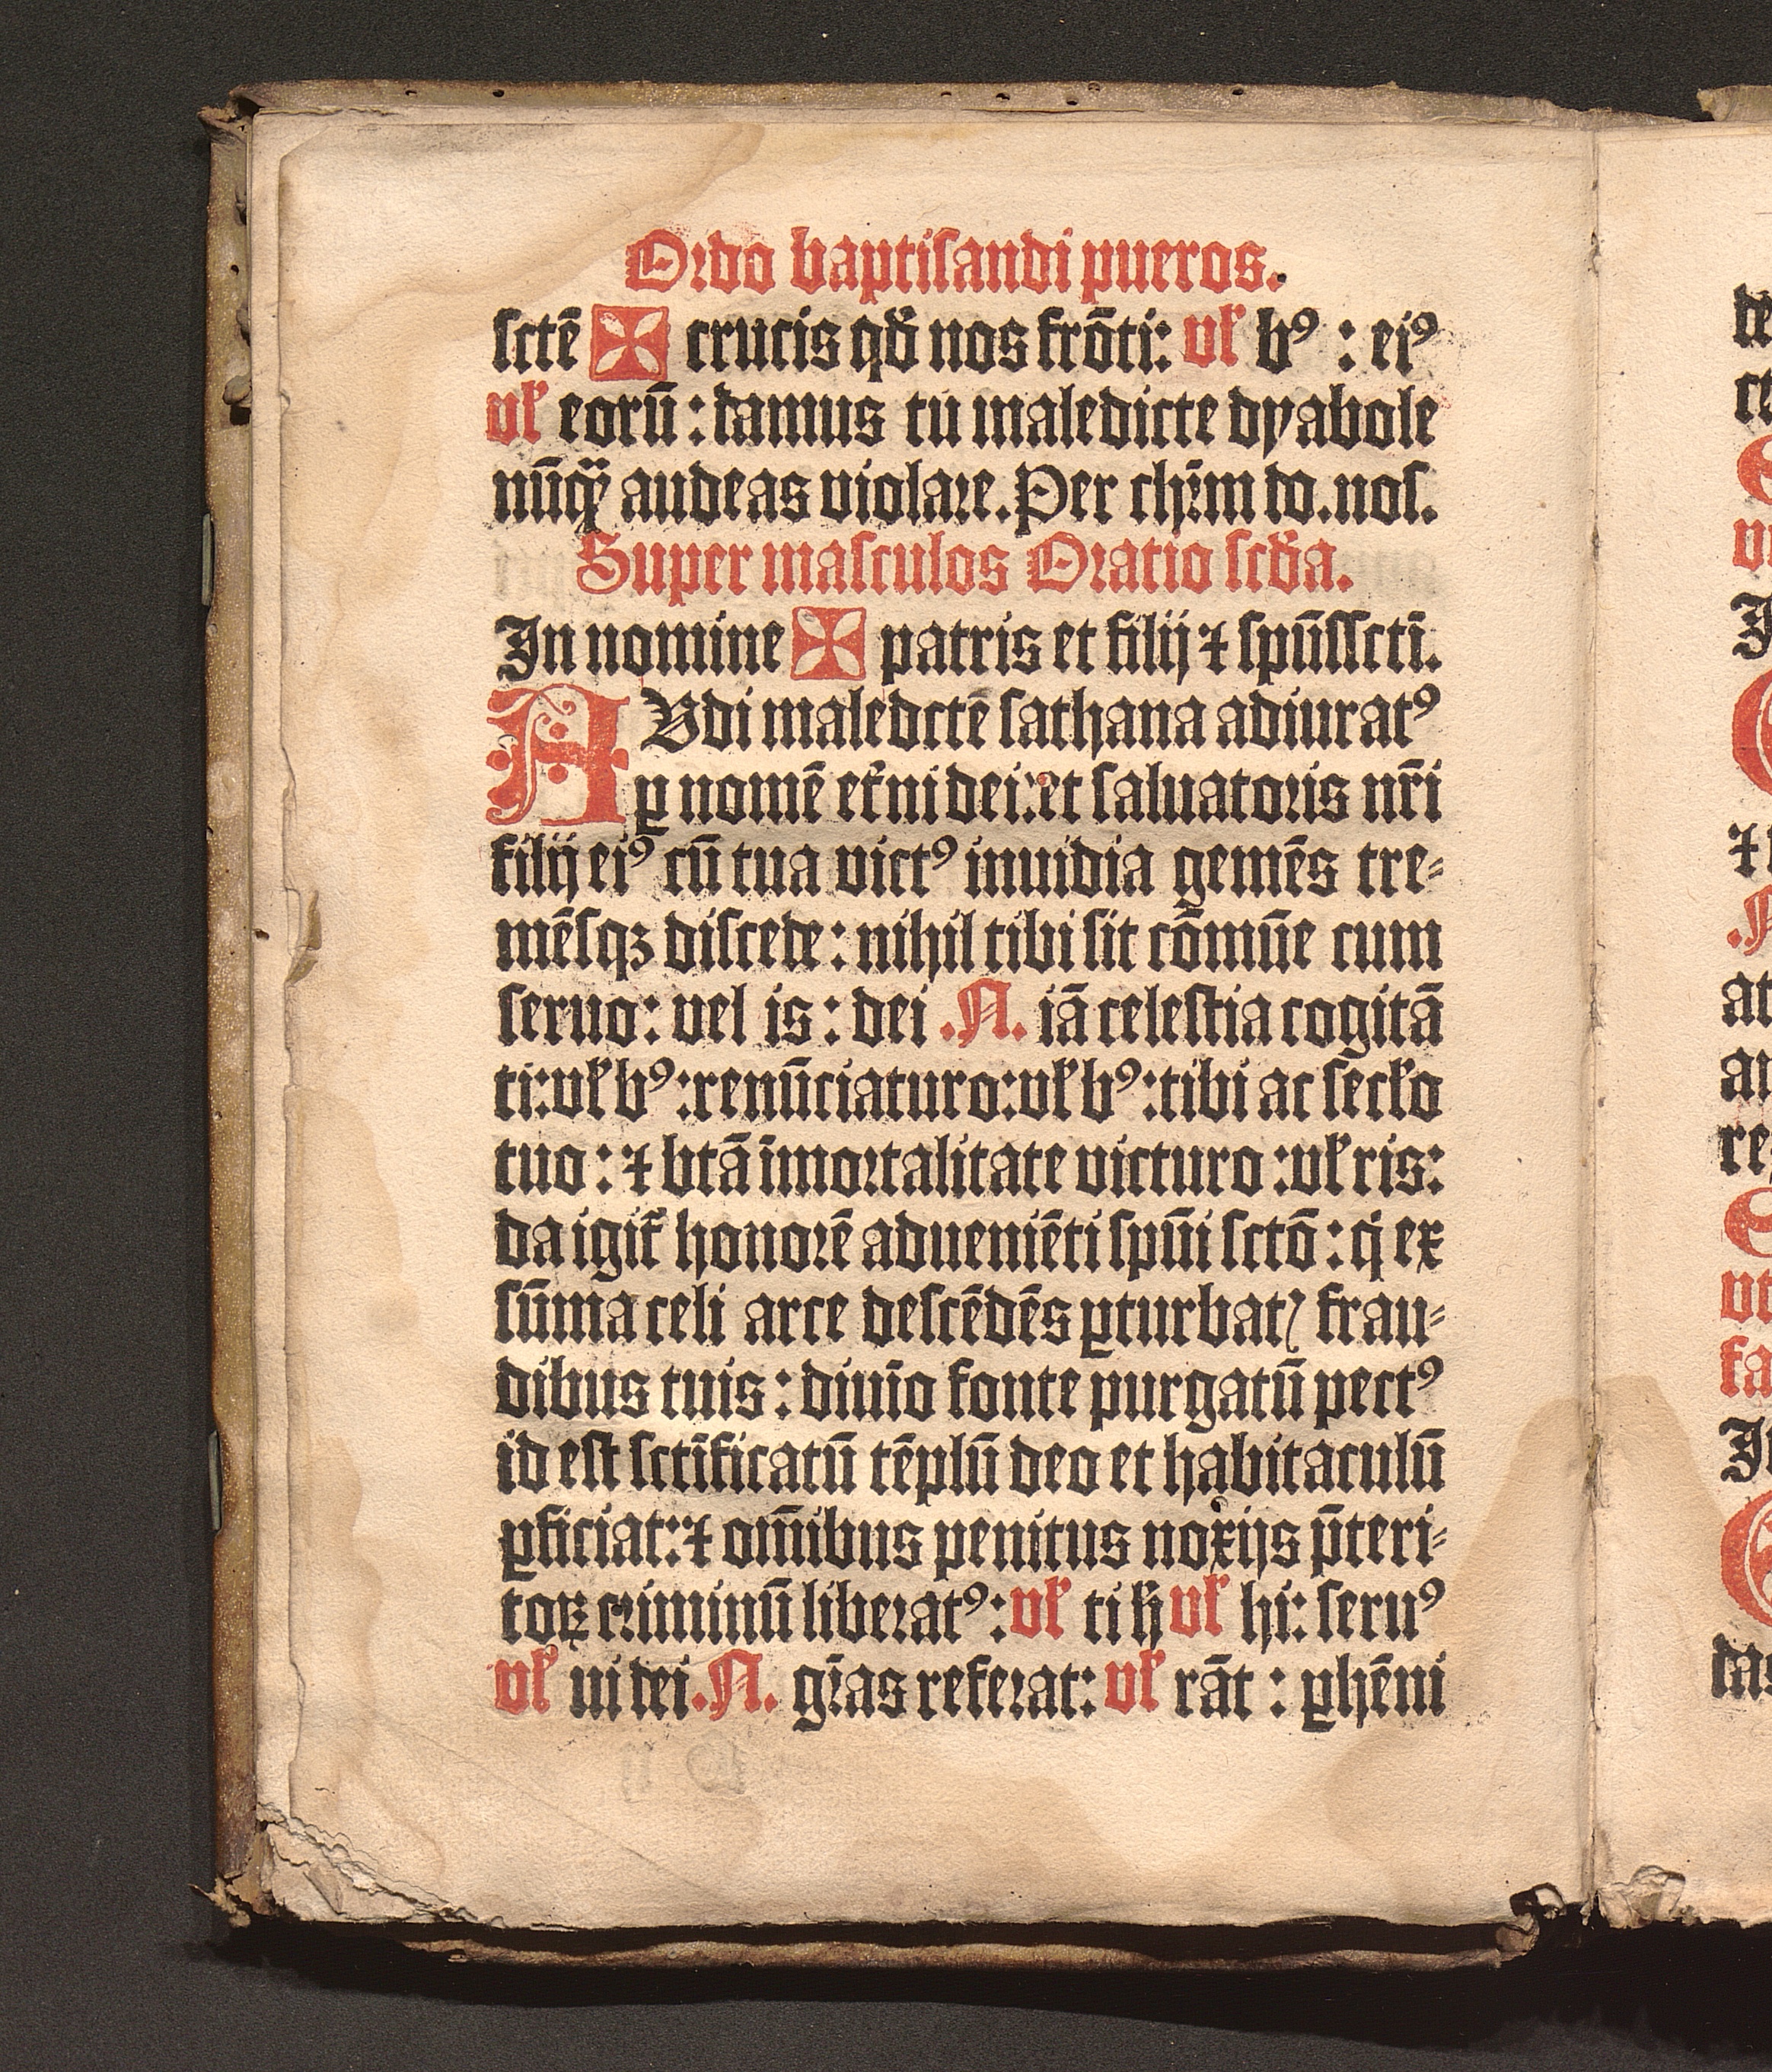 Ordo baptiſandi pueros.
ſctē ✠ crucis qđ nos frōti: vl̛ bꝰ : eiꝰ
vl̛ eorū : damus tu maledicte dyabole
nūqͣꝫ audeas violare. Per chr̄m do. noſ.
Super maſculos Oratio ſcđa.
In nomine ✠ patris et filij ⁊ ſpūſſctī.
AUdi maledctē ſathana adiuratꝰ
ꝑ nomē et̛ni dei: et ſaluatoris nr̄i
filij eiꝰ cū tua victꝰ inuidia gemēs tre⸗
mēſqꝫ diſcede : nihil tibi ſit cōmūe cum
ſeruo: vel is : dei .N. iā celeſtia cogitā
ti: vl̛ bꝰ: renūciaturo: vl̛ bꝰ: tibi ac ſecl̛o
tuo : ⁊ btā īmortalitate victuro : vl̛ ris:
da igit̛ honorē aduenīēti ſpūi ſctō : q̇ ex
ſūma celi arce deſcēdēs ꝑturbatꝭ frau⸗
dibus tuis : diuīo fonte purgatū pectꝰ
id eſt ſctīficatū tēplū deo et habitaculū
ꝑficiat: ⁊ om̄ibus penitus noxijs p̄teri⸗
toꝝ criminū liberatꝰ: vl̛ ti h̄ vl̛ hi: ſeruꝰ
vl̛ ui dei .N. gr̄as referat: vl̛ rāt : ꝑhēni